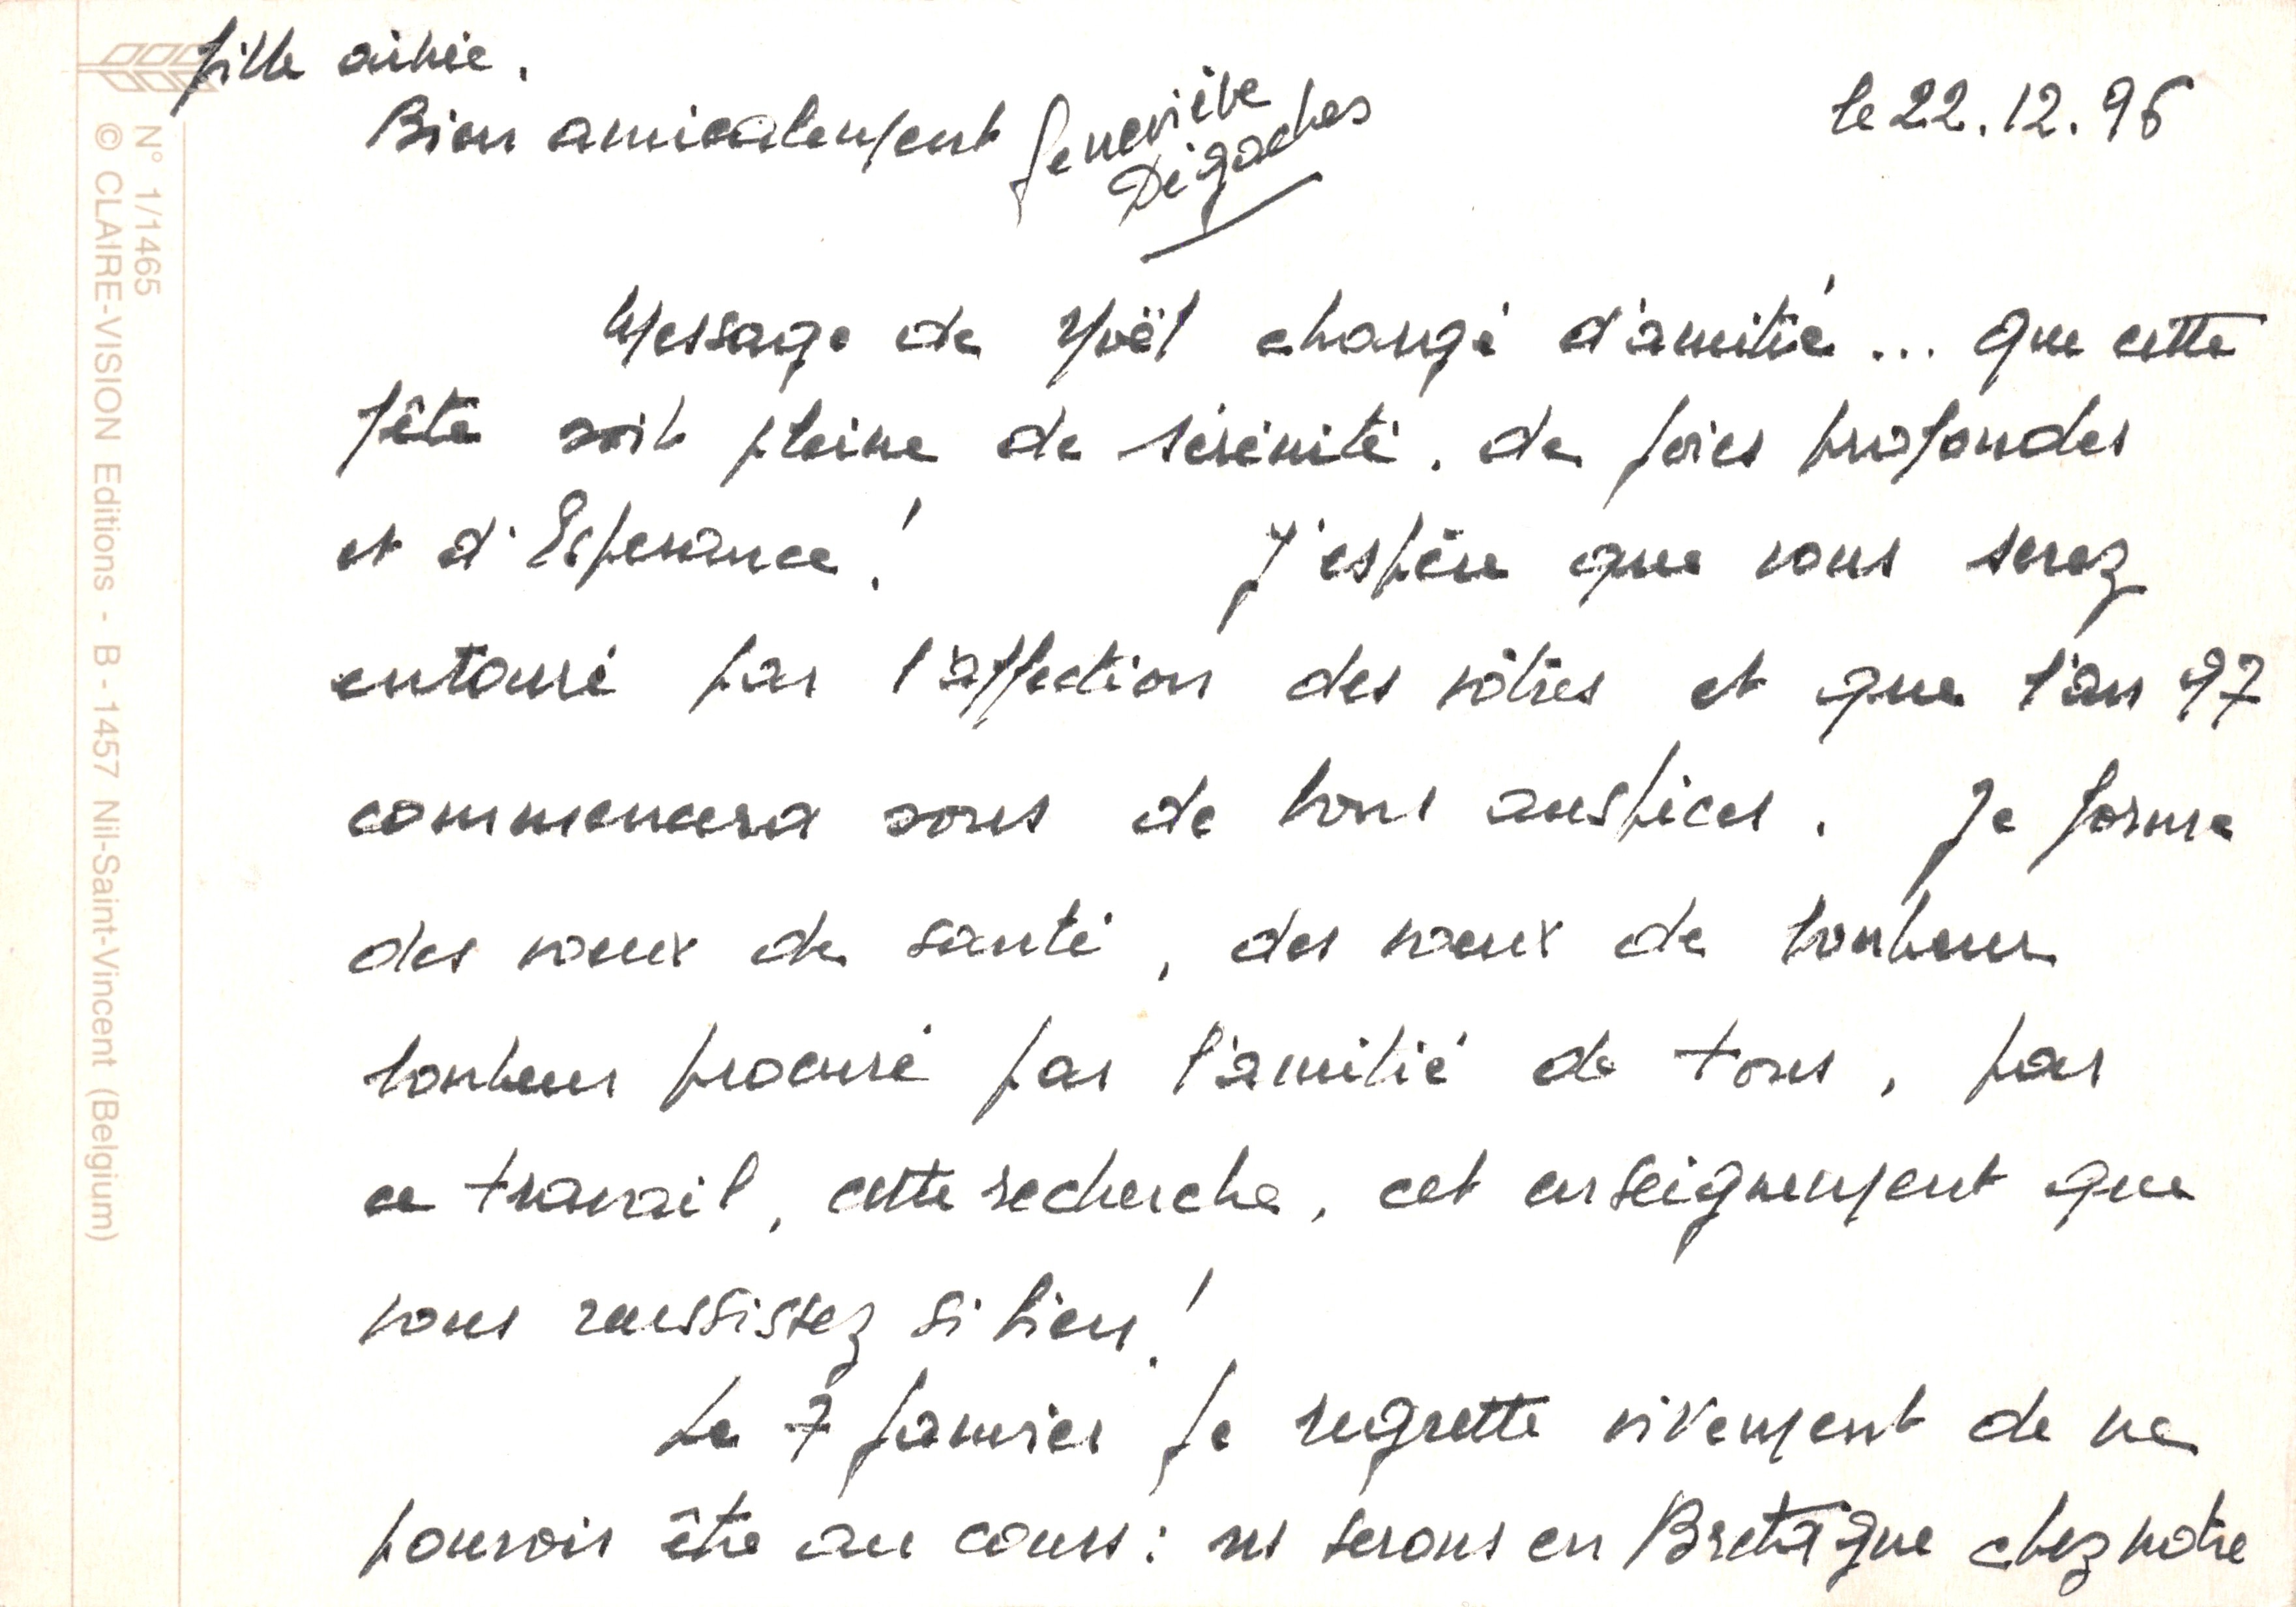 fille aînée.
Bien amicalement Geneviève
Dégaches
le 22.12.96
Message de Noël changé d'amitié... que cette
fête soit pleine de sérénité, de joies profondes
et d'Espérance! J'espère que vous serez
entouré par l'affection des vôtres et que l'an 97
commencera sous de bons auspices. Je forme
des vœux de santé, des vœux de bonheur
bonheur procuré par l'amitié de tous, par
ce travail, cette recherche, cet enseignement que
vous réussissez si bien!
Le 7 janvier je regrette vivement de ne
pouvoir être au cours: ns serons en Bretagne chez notre
N° 1/1465
© CLAIRE-VISION Editions - B - 1457 Nil-Saint-Vincent (Belgium)